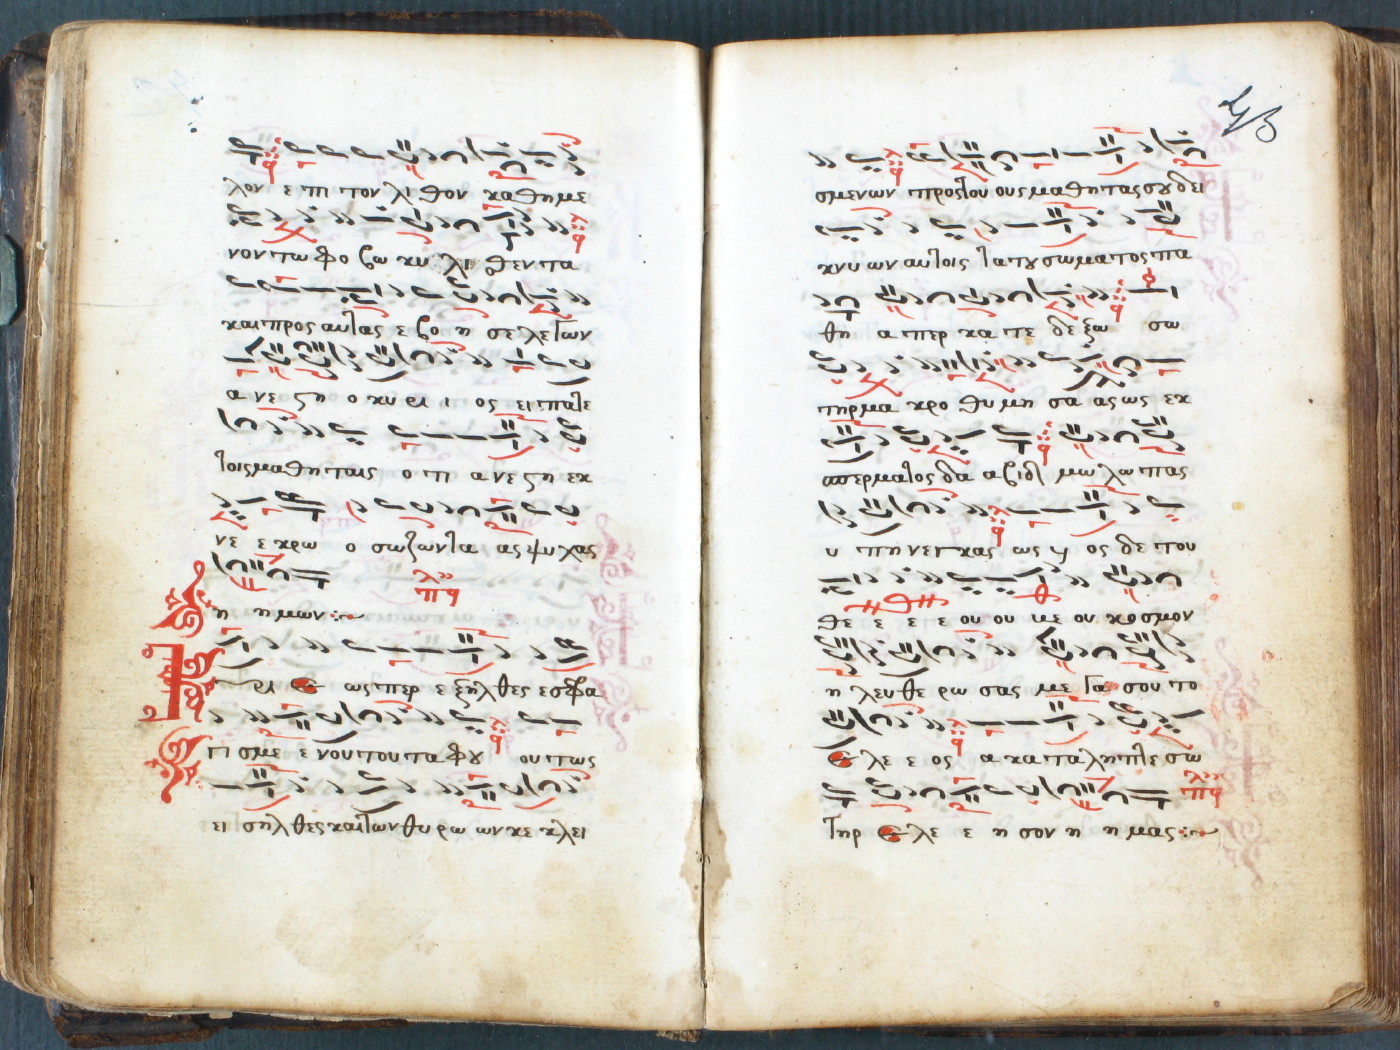 λον ε πι τον λι θον κα θη με
νον πω φο βω κυ λι θεν τα
και προς αυτας ε βο η σε λε των
α νε στη ο κυ ρι ι ος ει πα τε
τοις μα θη ταις ο τι α νε στη εκ
νε ε κρω ο σω ζων τα ας ψυ χας
η η μων
ρι ε ως περ ε ξηλθες εσφρα
γι σμε ε νου του τα φου ου τως
ει σηλθες και των θυ ρω ων κε κλει
43
σμενων προς του ους μα θη τας σου δει
κνυ ων αυτοις τα του σωματος πα
θη α περ κα τε δε ξω σω
τηρ μα κρο θυ μη σα ας ως εκ
σπερματος δα α βιδ μω λω πας
υ πη νεγ κας ως υι ος δε του
θε ε ε ε ου ου με ου κοσμον
η λευ θε ρω σας με γα σου το
ε λε ε ος α κα τα λη πτε σω
τηρ ε λε ε η σον η η μας